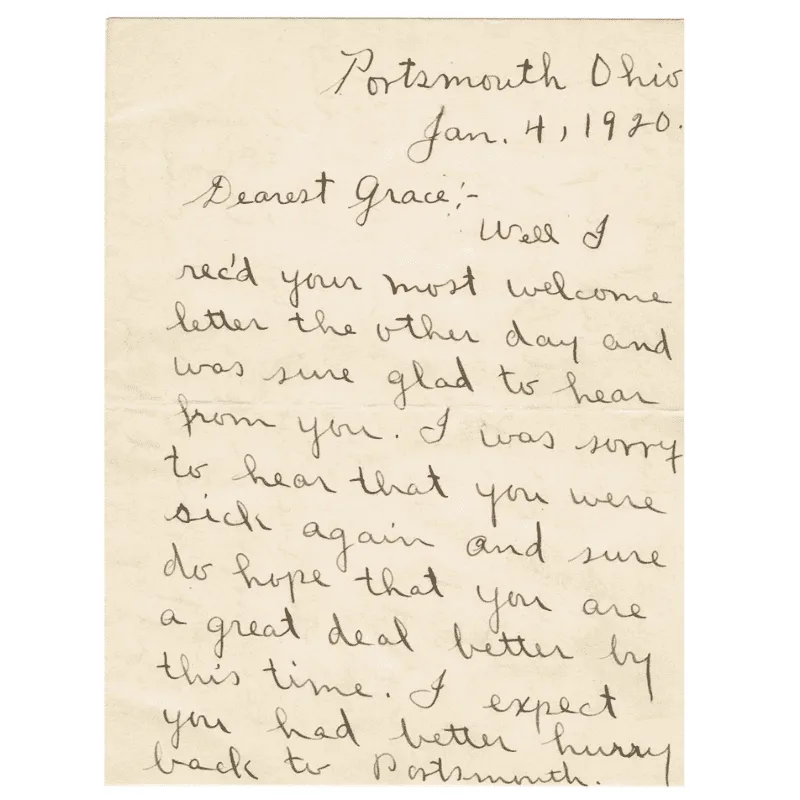 Portsmouth Ohio
Jan. 4, 1920.
Dearest Grace;-
Well I
rec'd your most welcome
letter the other day and
was sure glad to hear
from you. I was sorry
to hear that you were
sick again and sure
do hope that you are
a great deal better by
this time. I expect
you had better hurry
back to Portsmouth.